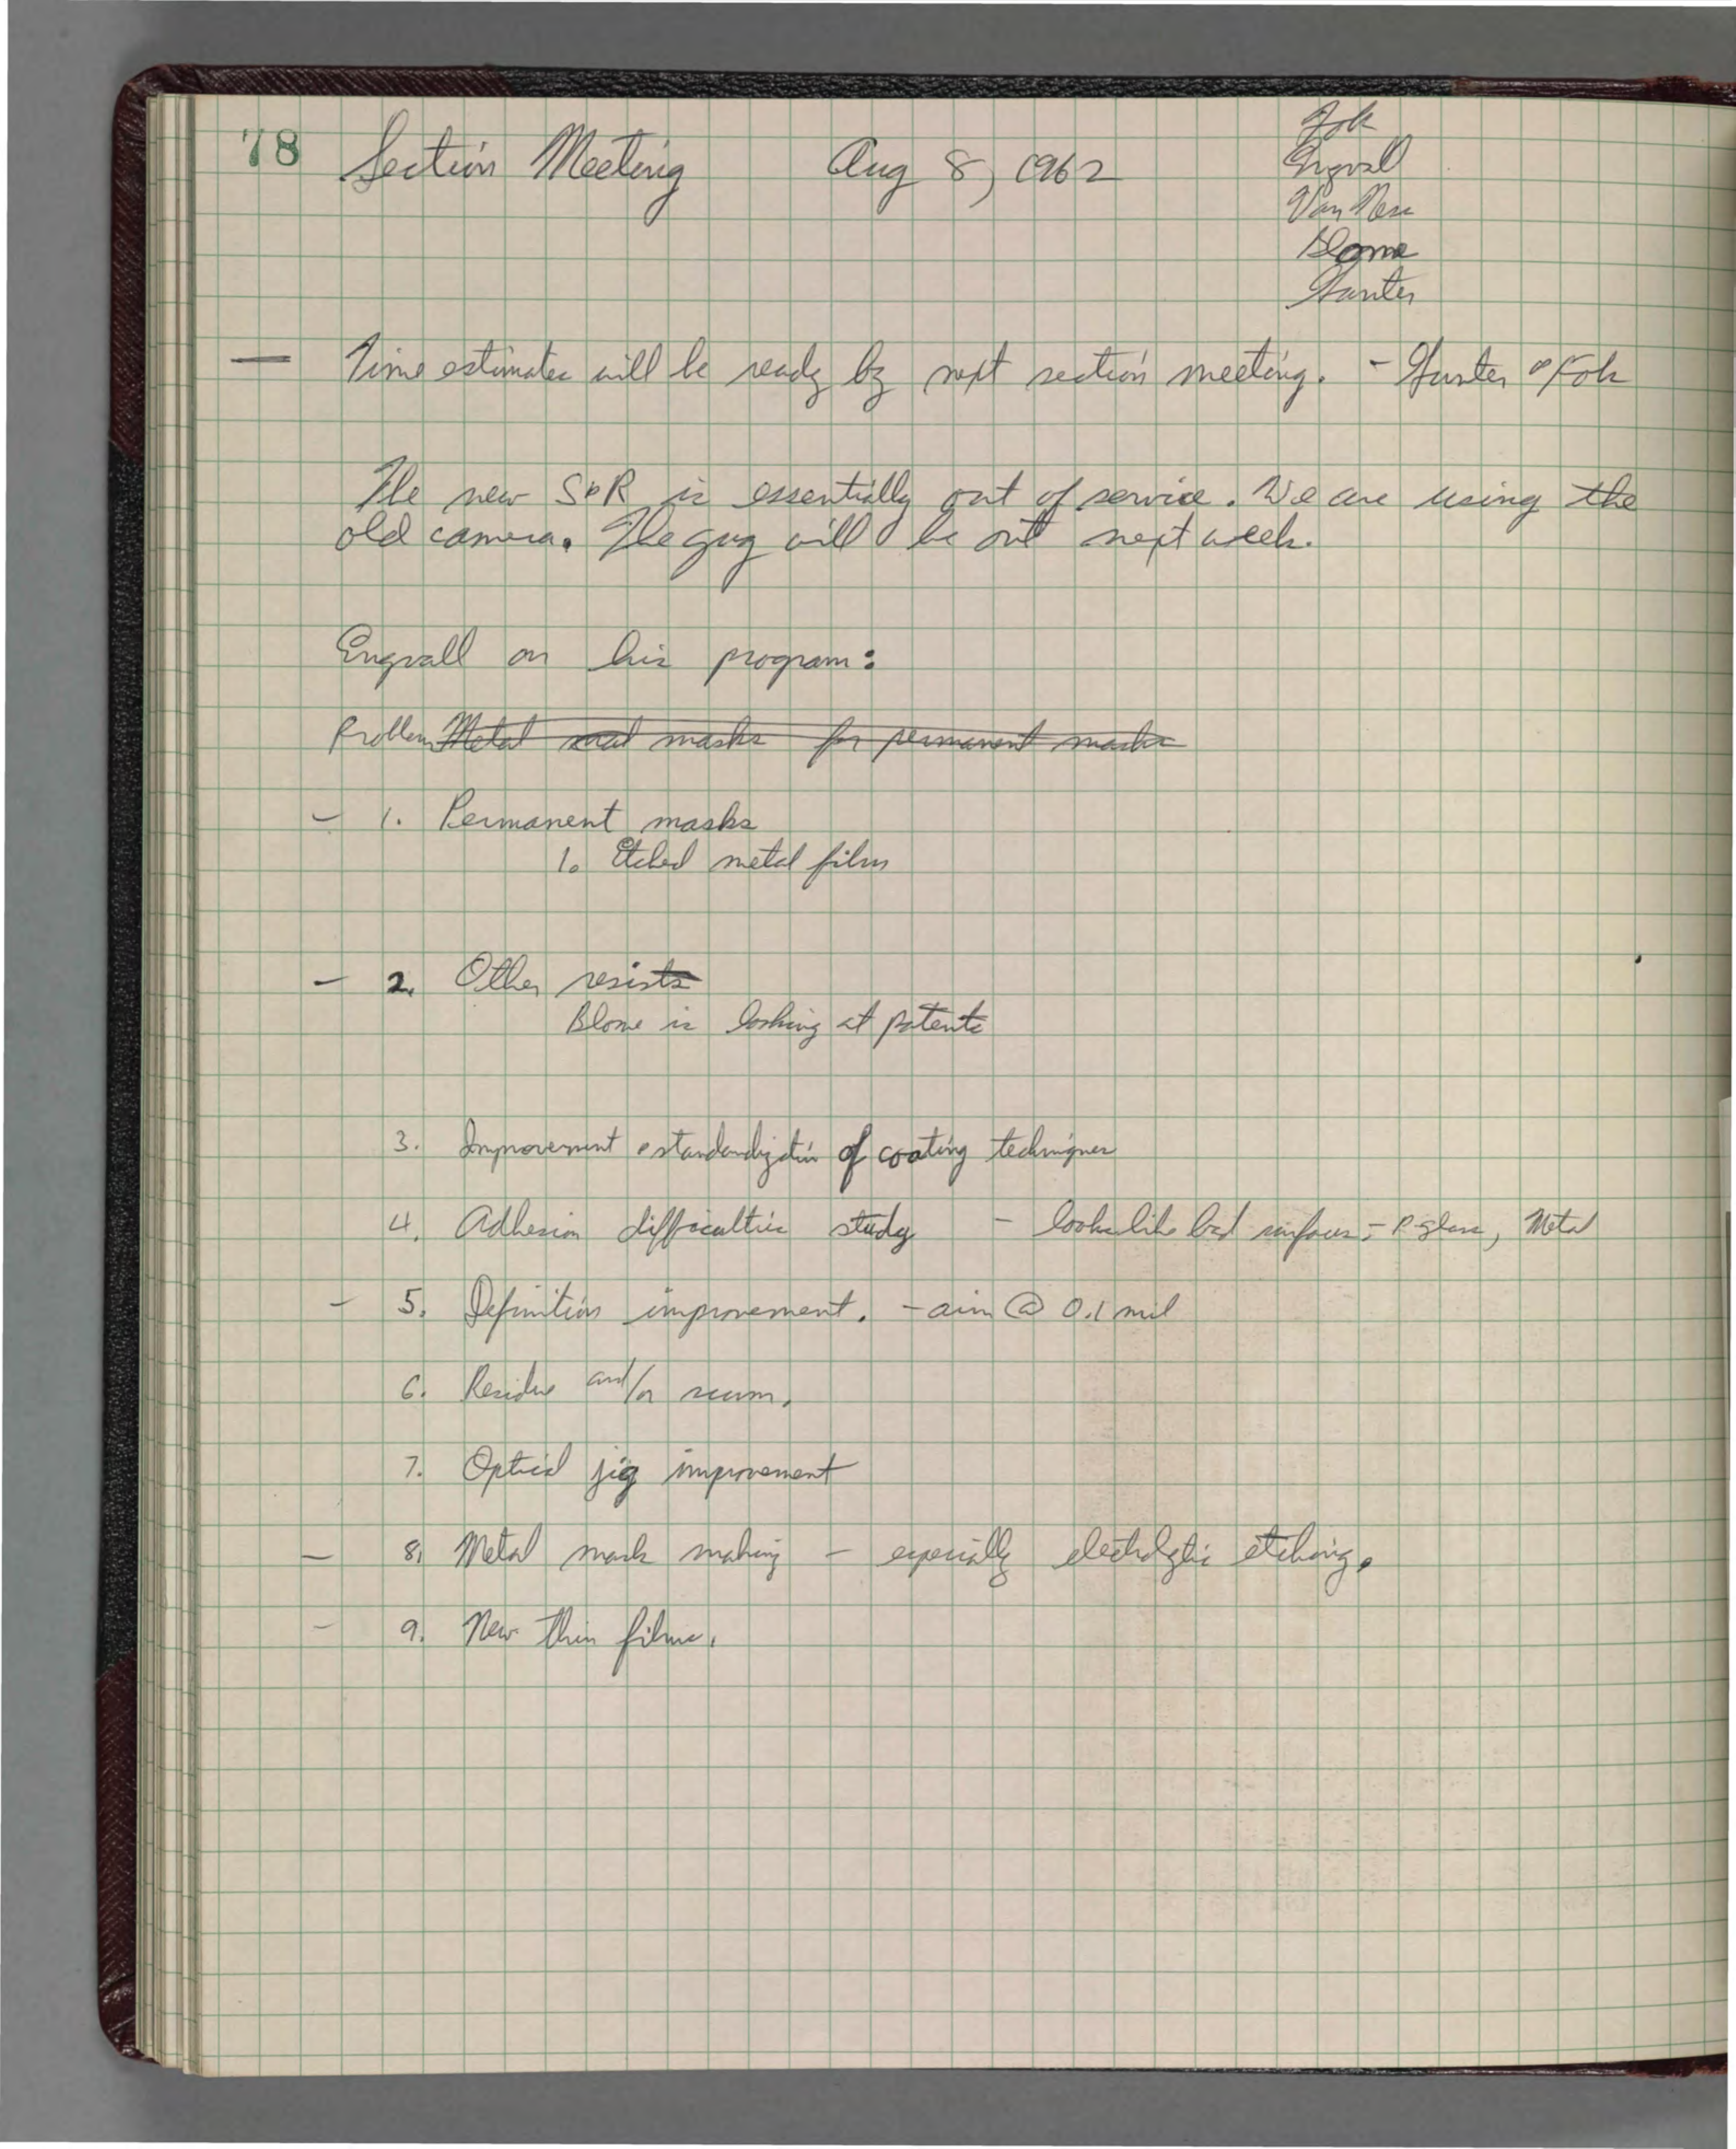 78 Section Meeting Aug 8, 1962
Fok
Engvall
Van Ness
Blome
Hunter
— Time estimates will be ready by next section meeting. - Hunter & Fok
The new S&R is essentially out of service. We are using the
old camera. The guy will be out next week.
Engvall on his program:
Problem Metal masks for permanent masks
- 1. Permanent masks
1. Etched metal film
- 2. Other resists
Blome is looking at patents
3. Improvement & standardization of coating techniques
4. Adhesion difficulties study - looks like bad surfaces - P-glass, Metal
- 5. Definition improvement. - aim @ 0.1 mil
6. Residue and/or scum.
7. Optical jig improvement
- 8. Metal mask making - especially electrolytic etching.
- 9. New thin films.